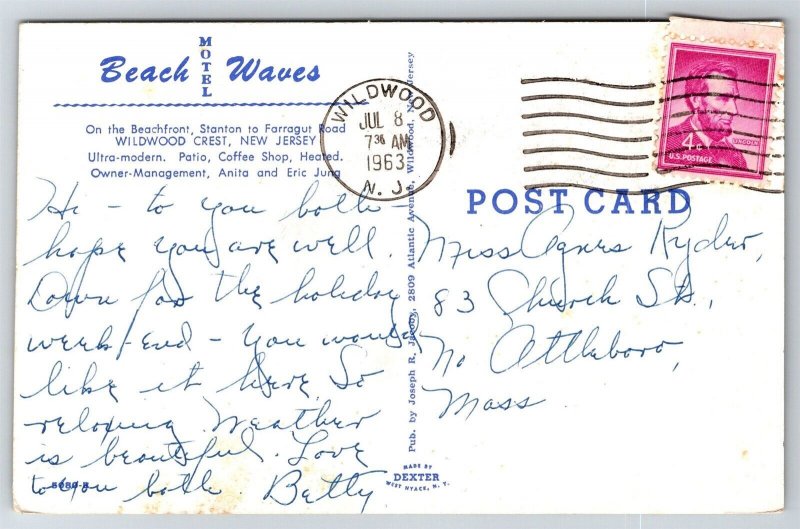 Beach MOTEL Waves
On the Beachfront, Stanton to Farragut Road
WILDWOOD CREST, NEW JERSEY
Ultra-modern. Patio, Coffee Shop, Heated.
Owner-Management, Anita and Eric Jung
Hi - to you both -
hope you are well.
Down for the holiday
week-end - you would
like it here. So
relaxing. Weather
is beautiful. Love
to you both. Betty
Pub. by Joseph R. Jacoby, 2809 Atlantic Avenue, Wildwood, New Jersey
WILDWOOD
JUL 8
7 30 AM
1963
N. J.
4¢
LINCOLN
U.S. POSTAGE
POST CARD
Miss Agnes Ryder,
83 Church St.,
No Attleboro,
Mass
MADE BY
DEXTER
WEST NYACK, N. Y.